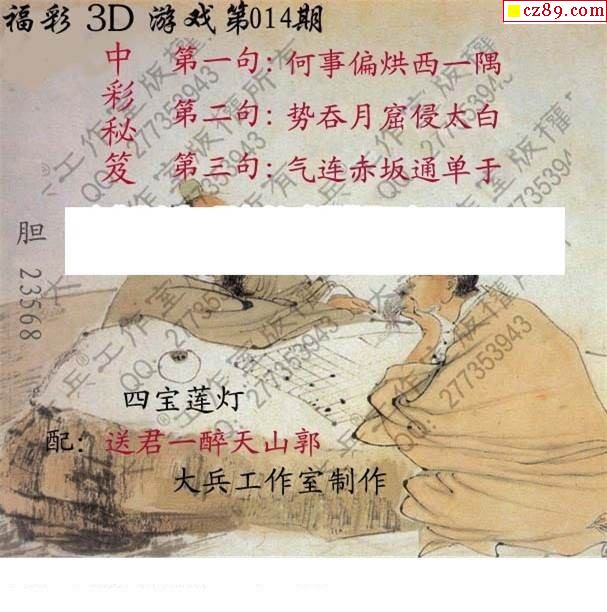 福彩 3D 游戏第014期
cz89.com
中彩秘笈
第一句：何事偏烘西一隅
第二句：势吞月窟侵太白
第三句：气连赤坂通单于
胆 23568
四宝莲灯
配：送君一醉天山郭
大兵工作室制作
大兵®工作室版权所有
QQ：277353943